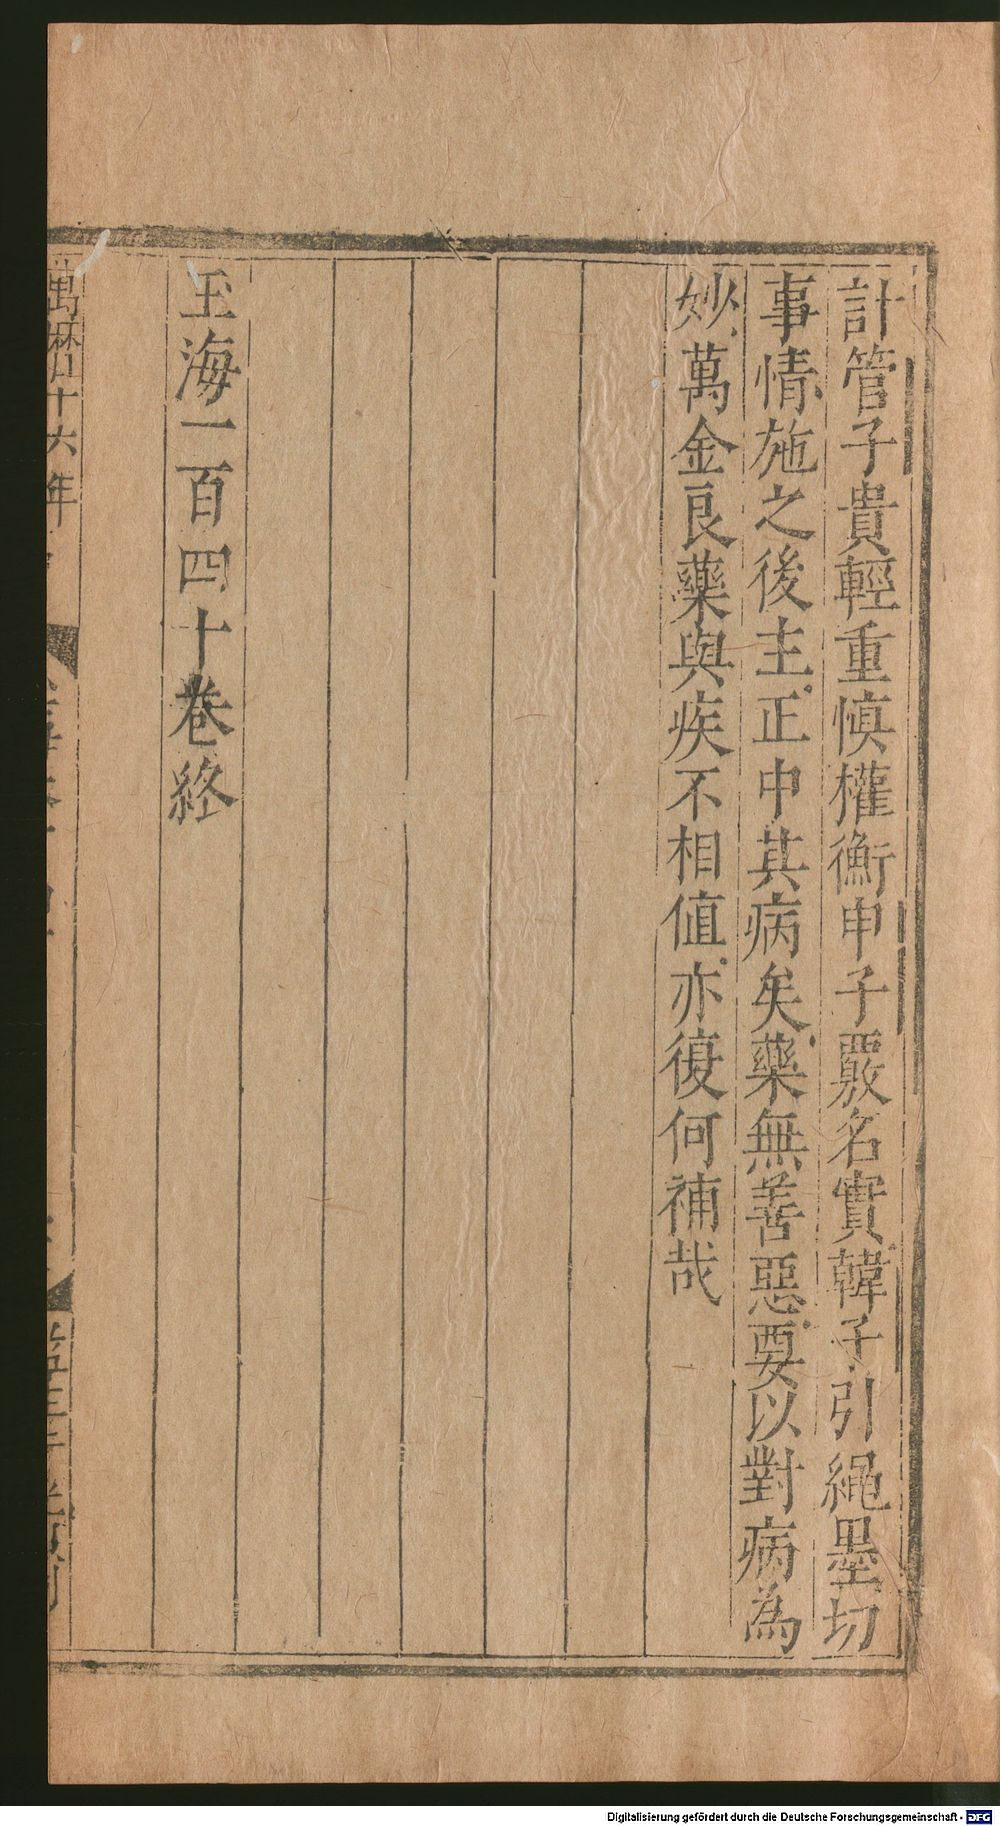 計管子貴輕重慎權衡申子覈名實韓子引繩墨切
事情施之後主正中其病矣藥無善惡要以對病為
妙萬金良藥與疾不相值亦復何補哉
玉海一百四十卷終
萬曆十六年
Digitalisierung gefördert durch die Deutsche Forschungsgemeinschaft - DFG